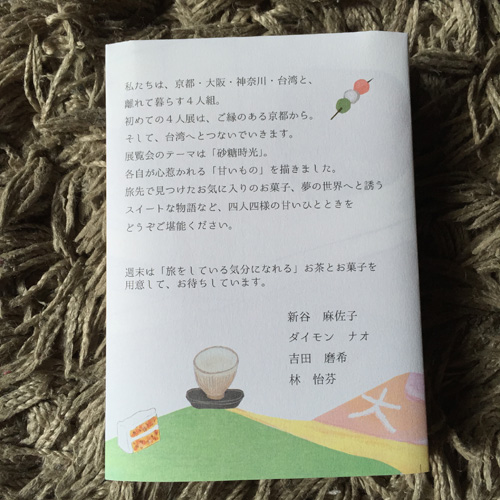 私たちは、京都・大阪・神奈川・台湾と、
離れて暮らす４人組。
初めての４人展は、ご縁のある京都から。
そして、台湾へとつないでいきます。
展覧会のテーマは「砂糖時光」。
各自が心惹かれる「甘いもの」を描きました。
旅先で見つけたお気に入りのお菓子、夢の世界へと誘う
スイートな物語など、四人四様の甘いひとときを
どうぞご堪能ください。
週末は「旅をしている気分になれる」お茶とお菓子を
用意して、お待ちしています。
新谷　麻佐子
ダイモン　ナオ
吉田　磨希
林　怡芬
大